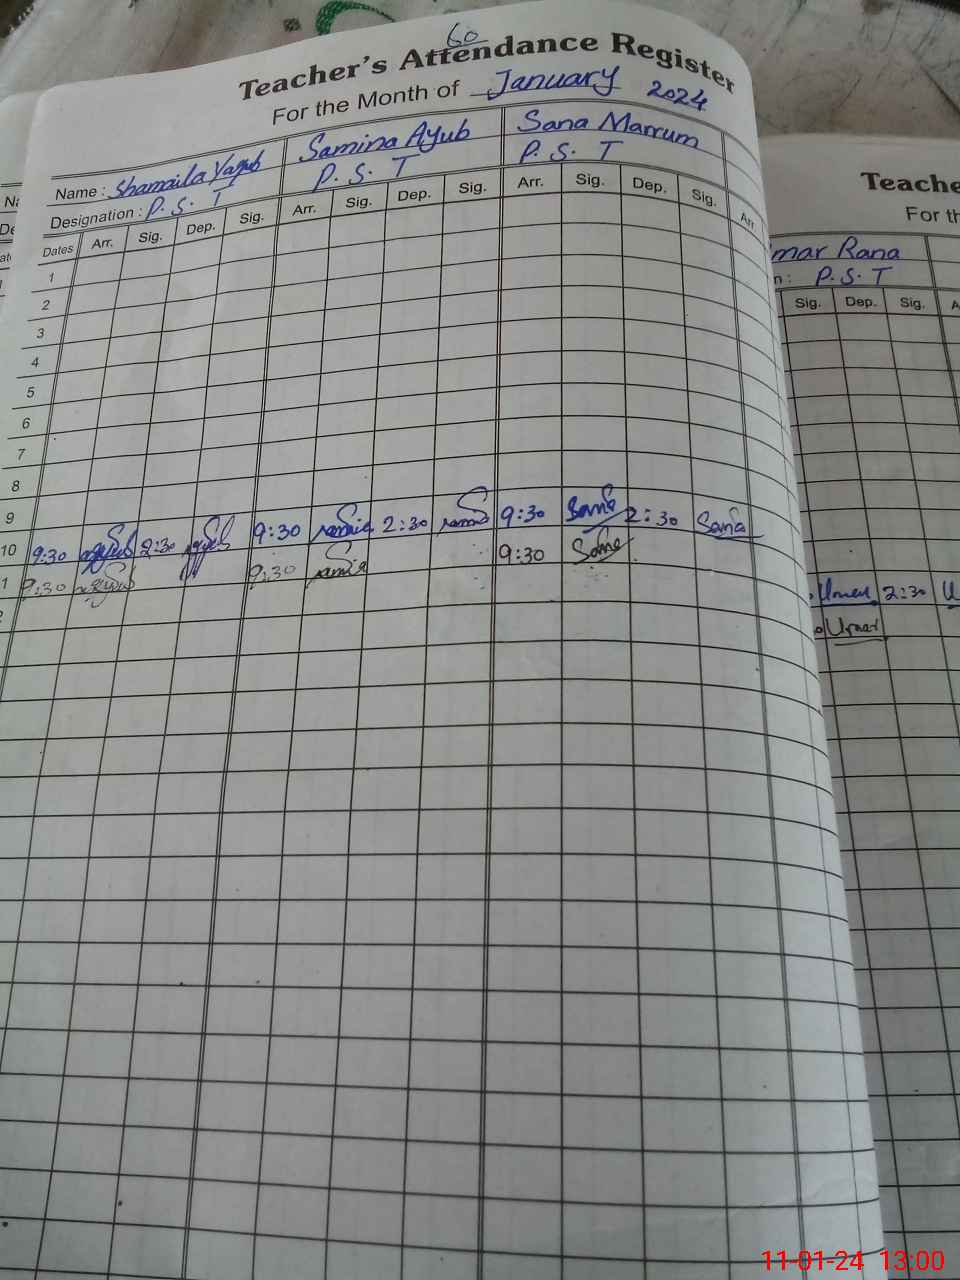 60
Teacher's Attendance Register
For the Month of January 2024
Name : Shamaila Yaqub Samina Ayub Sana Marrum
Designation : P. S. T P. S. T P. S. T
Dates Arr. Sig. Dep. Sig. Arr. Sig. Dep. Sig. Arr. Sig. Dep. Sig. Arr
1
2
3
4
5
6
7
8
9
10 9:30 2:30 9:30 2:30 9:30 Sana 2:30 Sana
1 9:30 9:30 9:30 Sana
2
Teache
For th
mar Rana
n : P. S. T
Sig. Dep. Sig. A
Umar 2:30 U
Umar
11-01-24 13:00